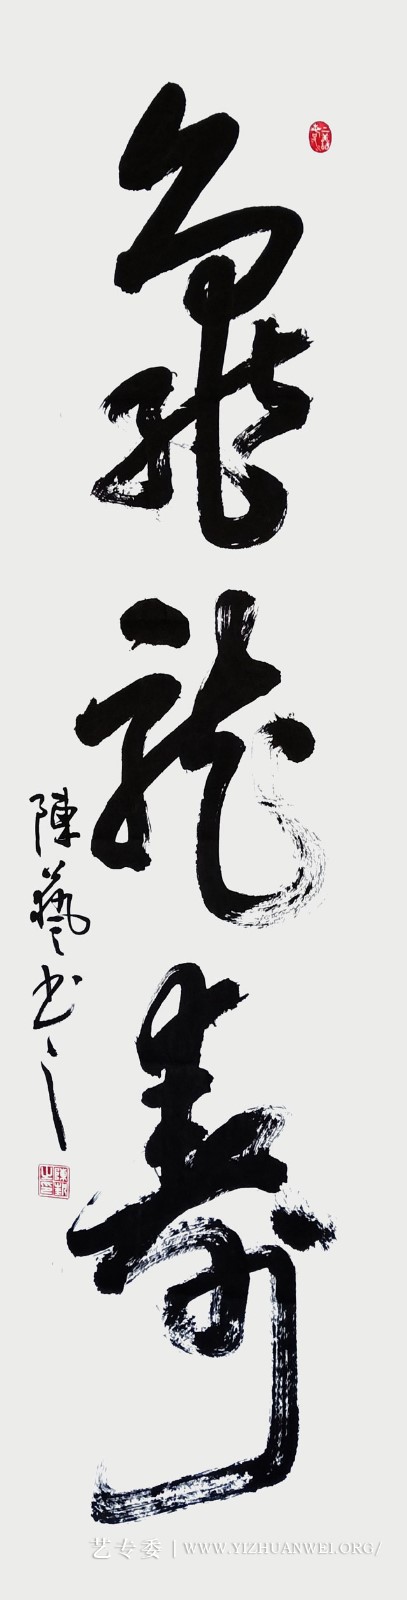 龜龍壽
陳藝书之
艺专委 | WWW.YIZHUANWEI.ORG/